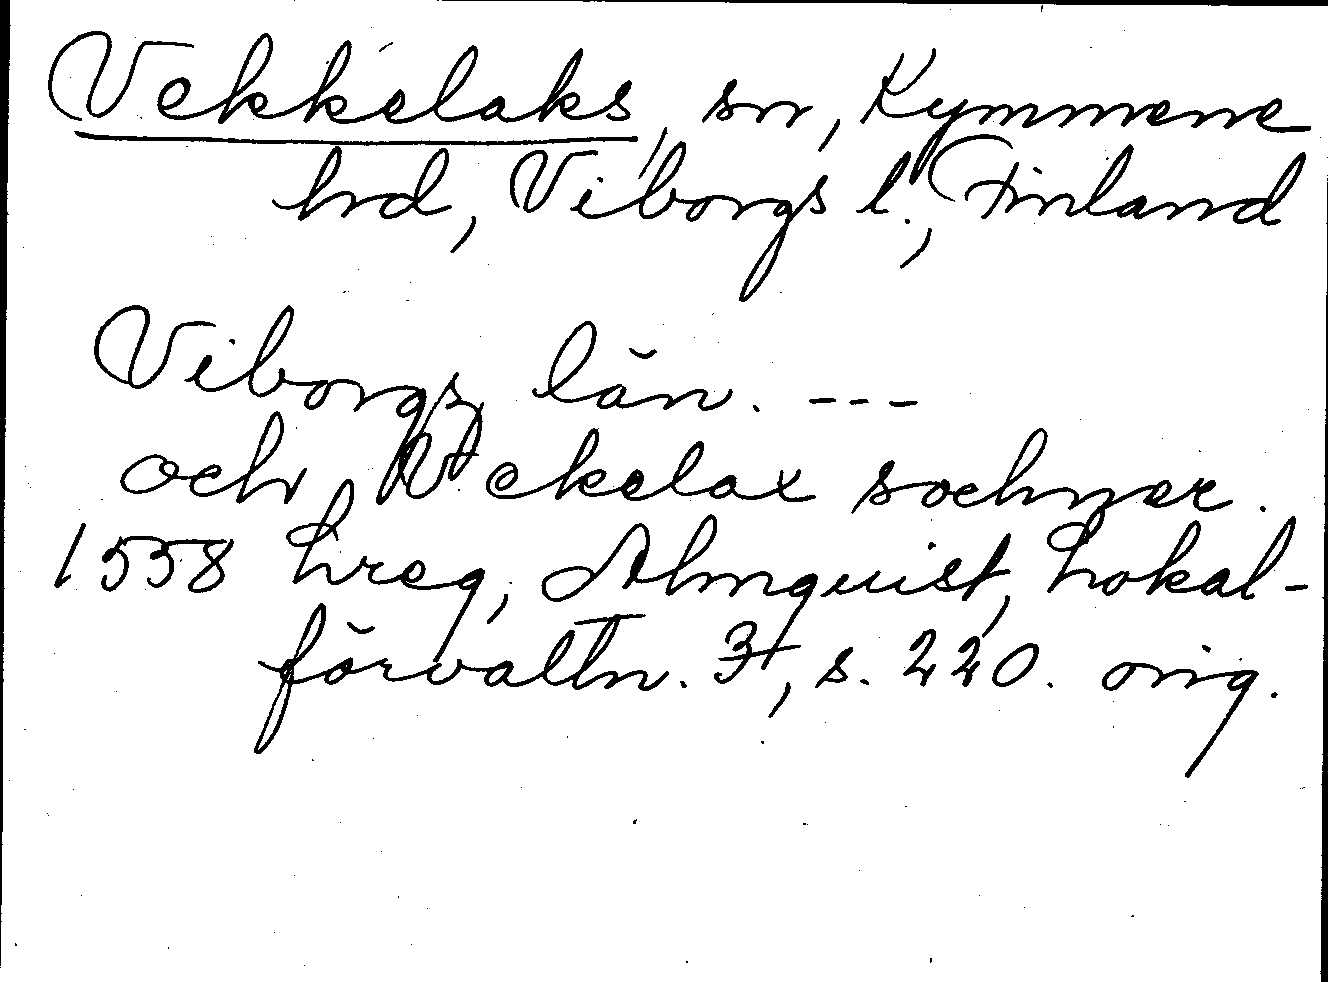 Vekkelaks, sn, Kymmene
hd, Viborgs l., Finland
Viborgs län. ---
och Wekelax sochner.
1558 hreg, Almquist, Lokal-
förvaltn. 3, s. 220. orig.